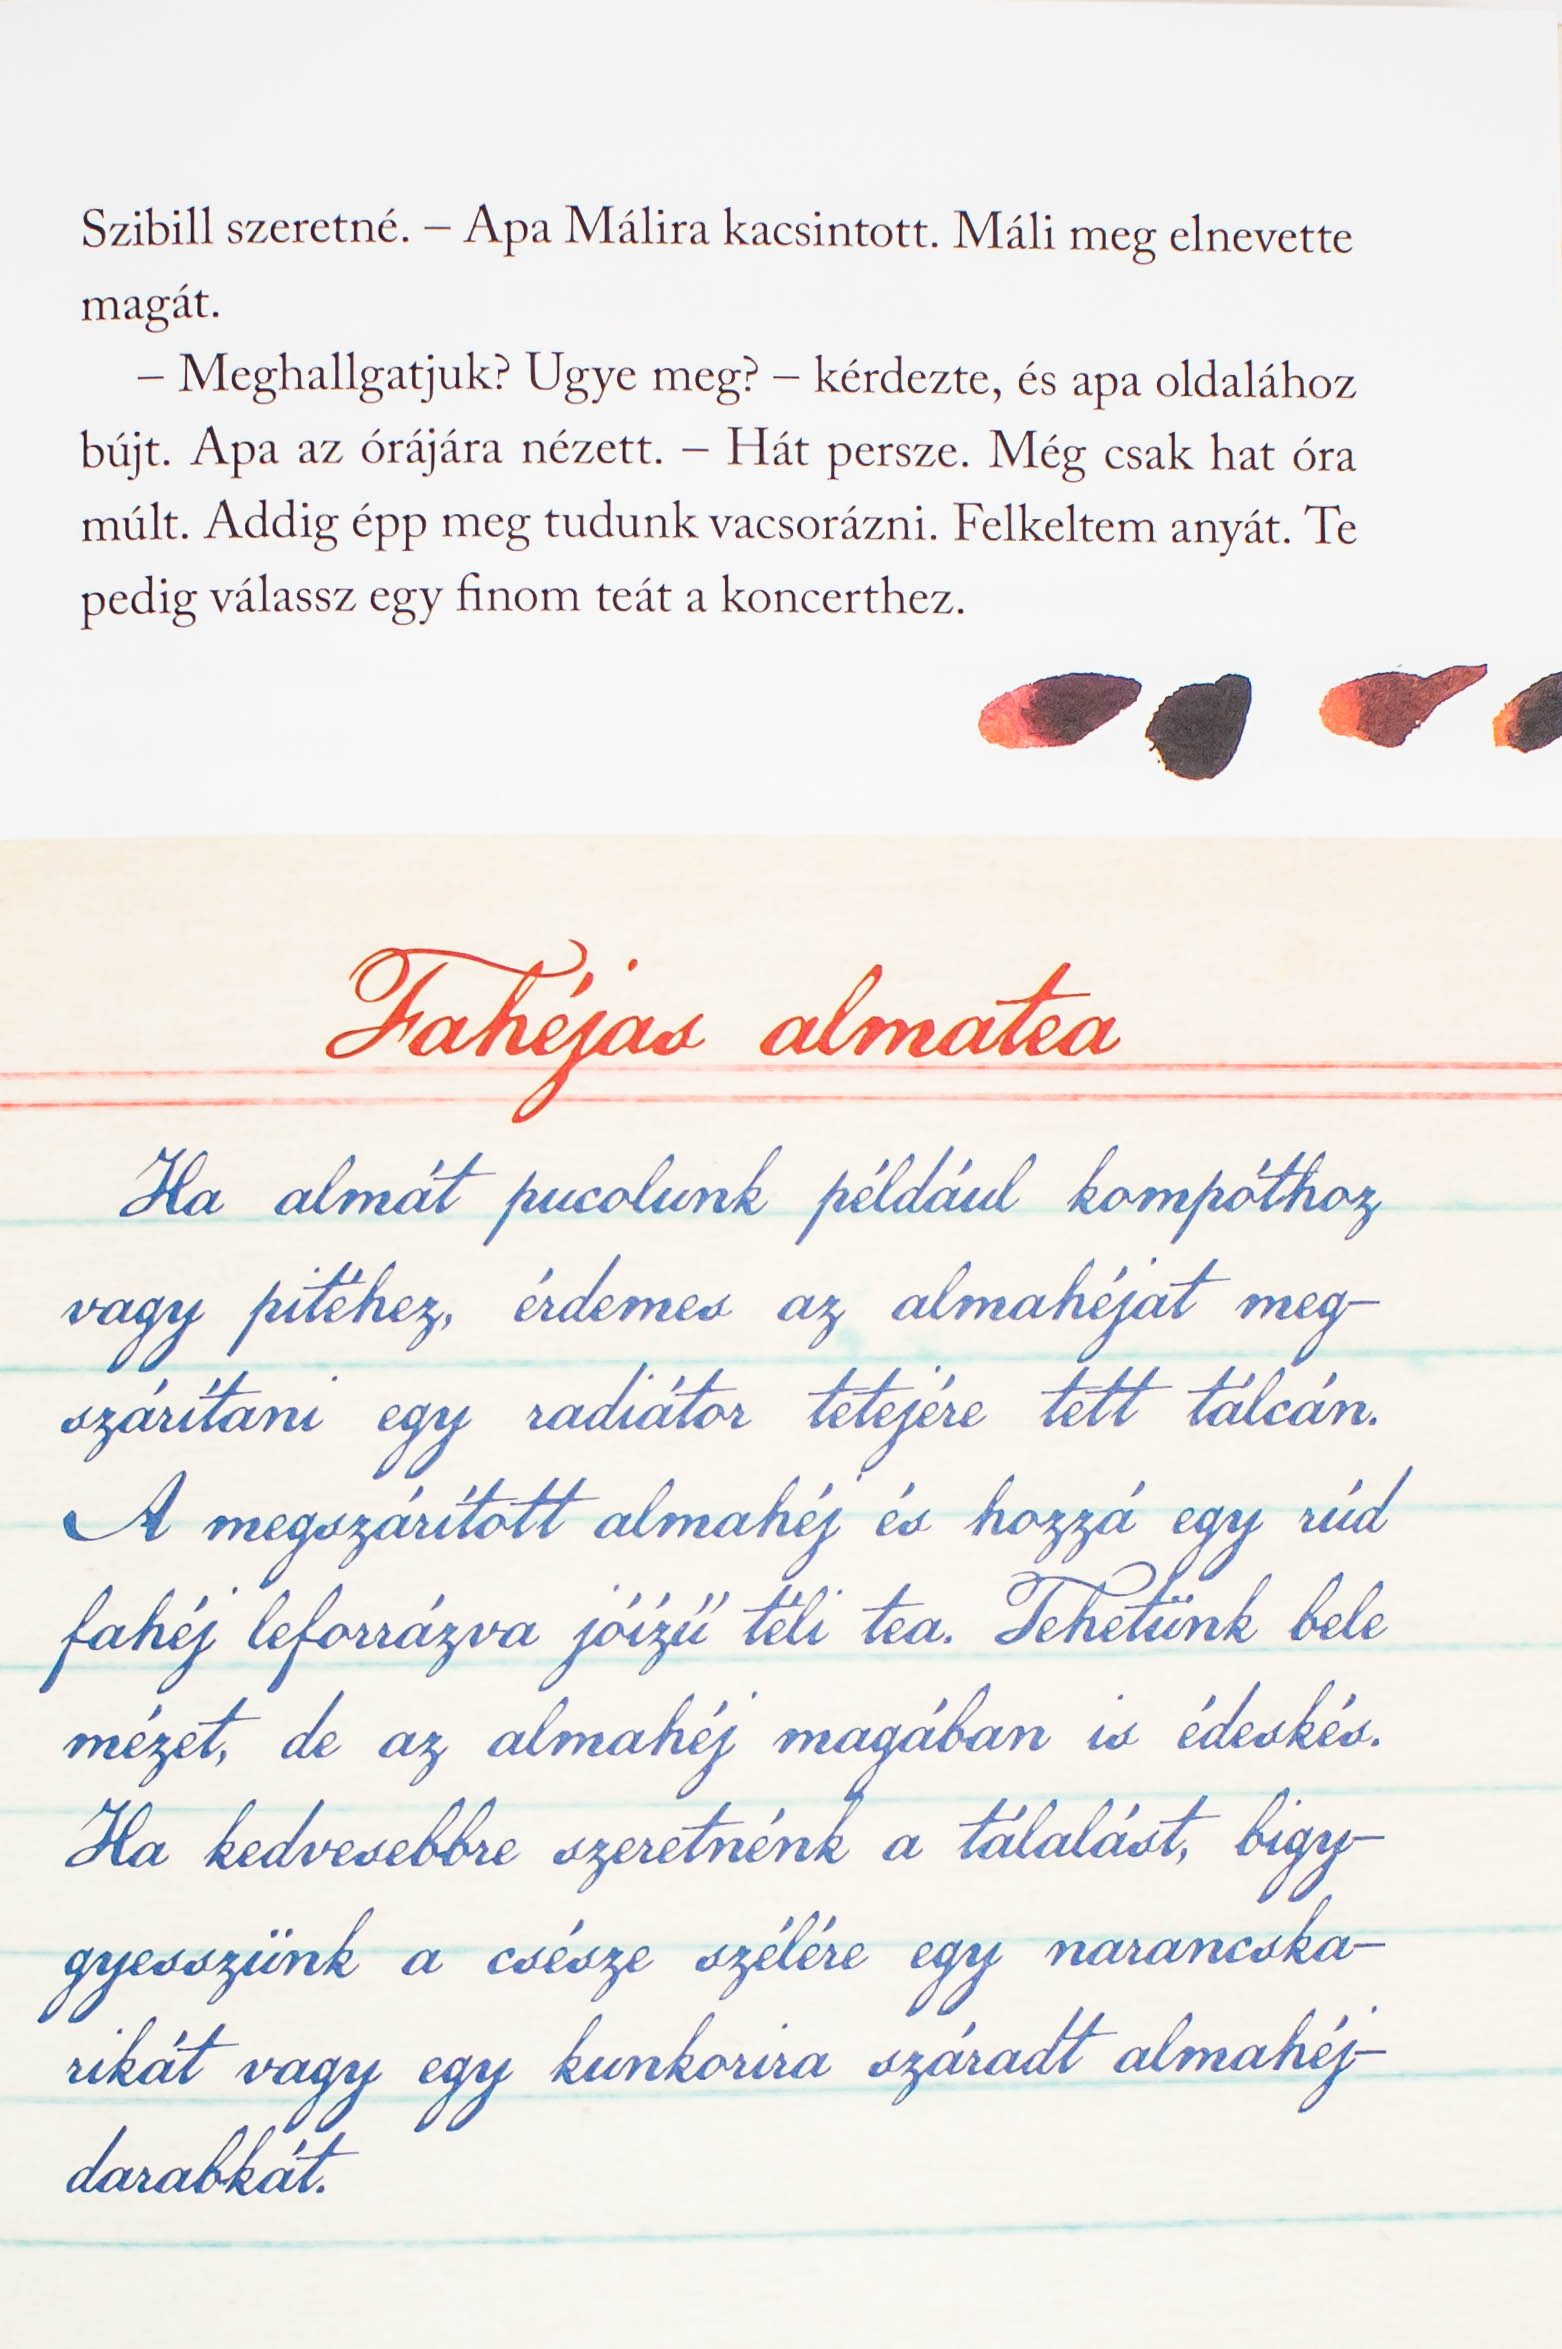 Szibill szeretné. – Apa Málira kacsintott. Máli meg elnevette
magát.
– Meghallgatjuk? Ugye meg? – kérdezte, és apa oldalához
bújt. Apa az órájára nézett. – Hát persze. Még csak hat óra
múlt. Addig épp meg tudunk vacsorázni. Felkeltem anyát. Te
pedig válassz egy finom teát a koncerthez.
Fahéjas almatea
Ha almát pucolunk például kompóthoz
vagy pitéhez, érdemes az almahéjat meg-
szárítani egy radiátor tetejére tett tálcán.
A megszárított almahéj és hozzá egy rúd
fahéj leforrázva jóízű téli tea. Tehetünk bele
mézet, de az almahéj magában is édeskés.
Ha kedvesebbre szeretnénk a tálalást, bigy-
gyesszünk a csésze szélére egy narancska-
rikát vagy egy kunkorira száradt almahéj-
darabkát.